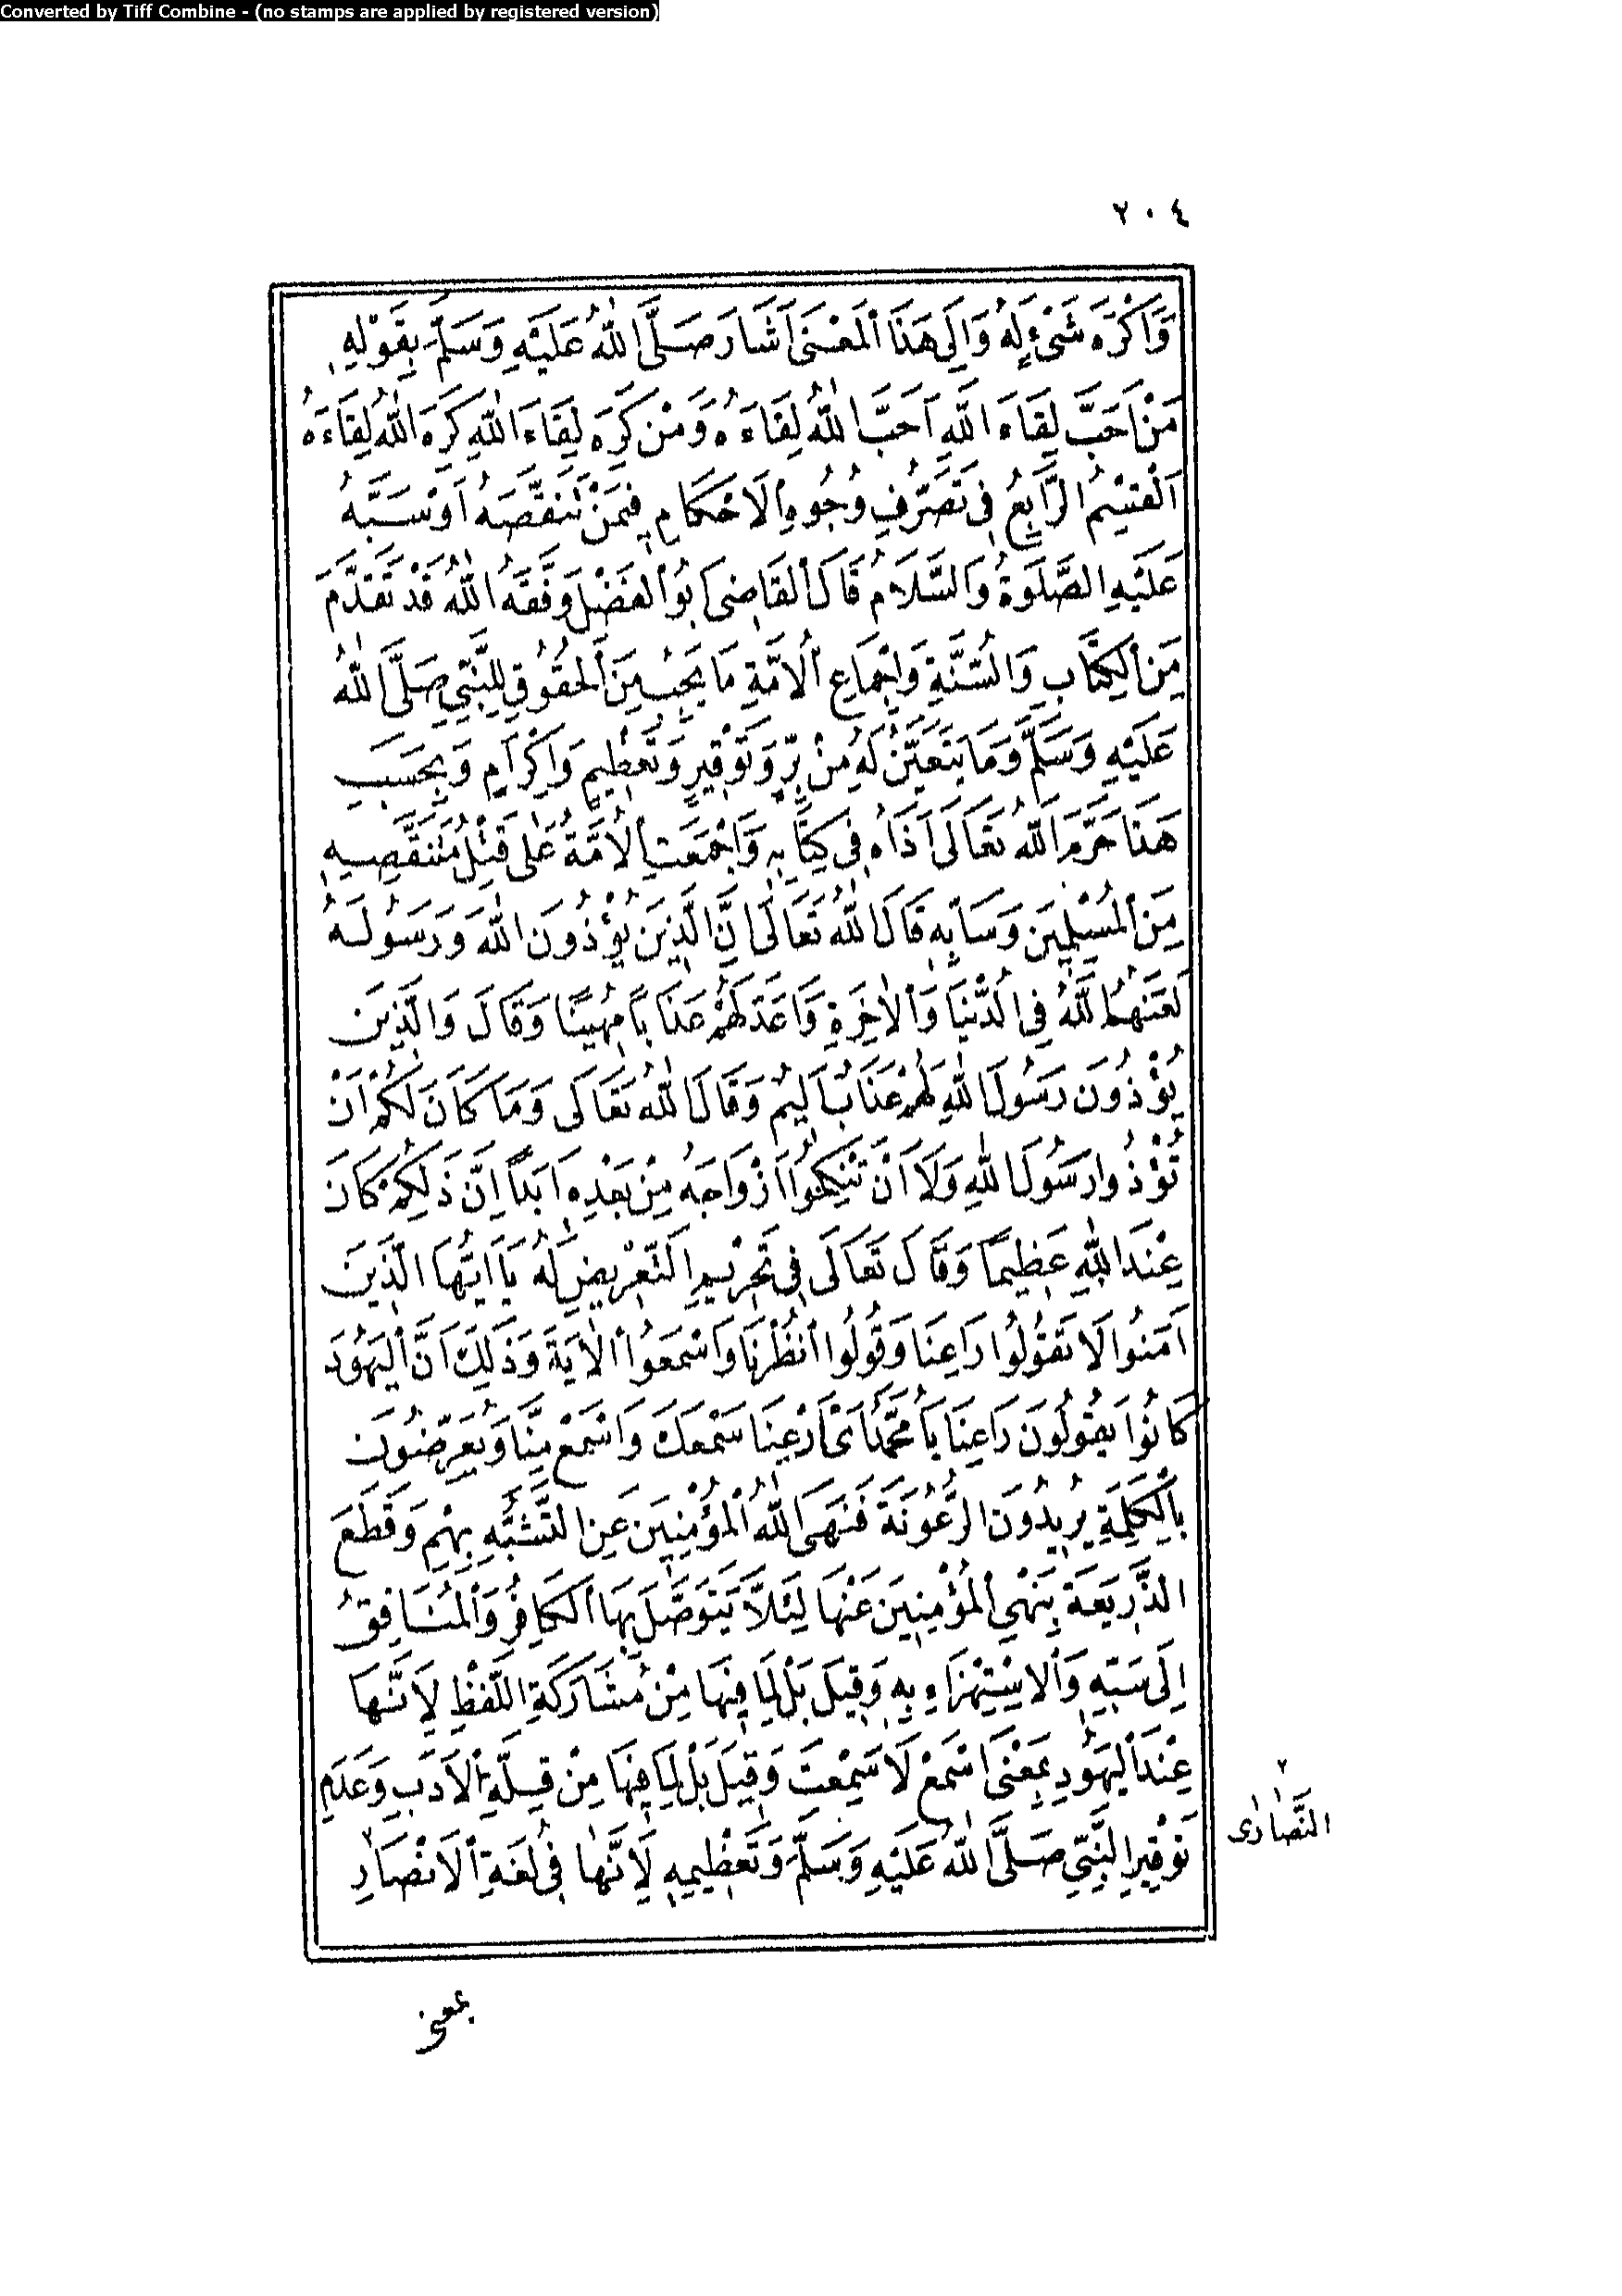 Converted by Tiff Combine - (no stamps are applied by registered version)
٢٠٤
وَاَكْرَهَ شَيْءٍ لَهُ وَاِلَى هَذَا الْمَعْنَى اَشَارَ صَلَّى اللّٰهُ عَلَيْهِ وَسَلَّمَ بِقَوْلِهِ
مَنْ اَحَبَّ لِقَاءَ اللّٰهِ اَحَبَّ اللّٰهُ لِقَاءَهُ وَمَنْ كَرِهَ لِقَاءَ اللّٰهِ كَرِهَ اللّٰهُ لِقَاءَهُ
اَلْقِسْمُ الرَّابِعُ فِى تَصَرُّفِ وُجُوهِ الْاَحْكَامِ فِيمَنْ تَنَقَّصَهُ اَوْ سَبَّهُ
عَلَيْهِ الصَّلٰوةُ وَالسَّلَامُ قَالَ الْقَاضِى اَبُو الْفَضْلِ وَفَّقَهُ اللّٰهُ قَدْ تَقَدَّمَ
مِنَ الْكِتَابِ وَالسُّنَّةِ وَاِجْمَاعِ الْاُمَّةِ مَا يَجِبُ مِنَ الْحُقُوقِ لِلنَّبِيِّ صَلَّى اللّٰهُ
عَلَيْهِ وَسَلَّمَ وَمَا يَتَعَيَّنُ لَهُ مِنْ بِرٍّ وَتَوْقِيرٍ وَتَعْظِيمٍ وَاِكْرَامٍ وَبِحَسَبِ
هَذَا حَرَّمَ اللّٰهُ تَعَالَى اَذَاهُ فِى كِتَابِهِ وَاَجْمَعَتِ الْاُمَّةُ عَلٰى قَتْلِ مُتَنَقِّصِهِ
مِنَ الْمُسْلِمِينَ وَسَابِّهِ قَالَ اللّٰهُ تَعَالٰى اِنَّ الَّذِينَ يُؤْذُونَ اللّٰهَ وَرَسُولَهُ
لَعَنَهُمُ اللّٰهُ فِى الدُّنْيَا وَالْاٰخِرَةِ وَاَعَدَّ لَهُمْ عَذَابًا مُهِينًا وَقَالَ وَالَّذِينَ
يُؤْذُونَ رَسُولَ اللّٰهِ لَهُمْ عَذَابٌ اَلِيمٌ وَقَالَ اللّٰهُ تَعَالَى وَمَا كَانَ لَكُمْ اَنْ
تُؤْذُوا رَسُولَ اللّٰهِ وَلَا اَنْ تَنْكِحُوا اَزْوَاجَهُ مِنْ بَعْدِهِ اَبَدًا اِنَّ ذَلِكُمْ كَانَ
عِنْدَ اللّٰهِ عَظِيمًا وَقَالَ تَعَالَى فِى تَحْرِيمِ التَّعْرِيضِ لَهُ يَا اَيُّهَا الَّذِينَ
اٰمَنُوا لَا تَقُولُوا رَاعِنَا وَقُولُوا انْظُرْنَا وَاسْمَعُوا الْاٰيَةَ وَذَلِكَ اَنَّ الْيَهُودَ
كَانُوا يَقُولُونَ رَاعِنَا يَا مُحَمَّدُ اَىْ اَرْعِنَا سَمْعَكَ وَاسْمَعْ مِنَّا وَيُعَرِّضُونَ
بِالْكَلِمَةِ يُرِيدُونَ الرُّعُونَةَ فَنَهَى اللّٰهُ الْمُؤْمِنِينَ عَنِ التَّشَبُّهِ بِهِمْ وَقَطَعَ
الذَّرِيعَةَ بِنَهْيِ الْمُؤْمِنِينَ عَنْهَا لِئَلَّا يَتَوَصَّلَ بِهَا الْكَافِرُ وَالْمُنَافِقُ
اِلَى سَبِّهِ وَالِاسْتِهْزَاءِ بِهِ وَقِيلَ بَلْ لِمَا فِيهَا مِنْ مُشَارَكَةِ اللَّفْظِ لِاَنَّهَا
عِنْدَ الْيَهُودِ بِمَعْنَى اسْمَعْ لَا سَمِعْتَ وَقِيلَ بَلْ لِمَا فِيهَا مِنْ قِلَّةِ الْاَدَبِ وَعَدَمِ
تَوْقِيرِ النَّبِيِّ صَلَّى اللّٰهُ عَلَيْهِ وَسَلَّمَ وَتَعْظِيمِهِ لِاَنَّهَا فِى لُغَةِ الْاَنْصَارِ
٢
النَّصَارٰى
بمعنى